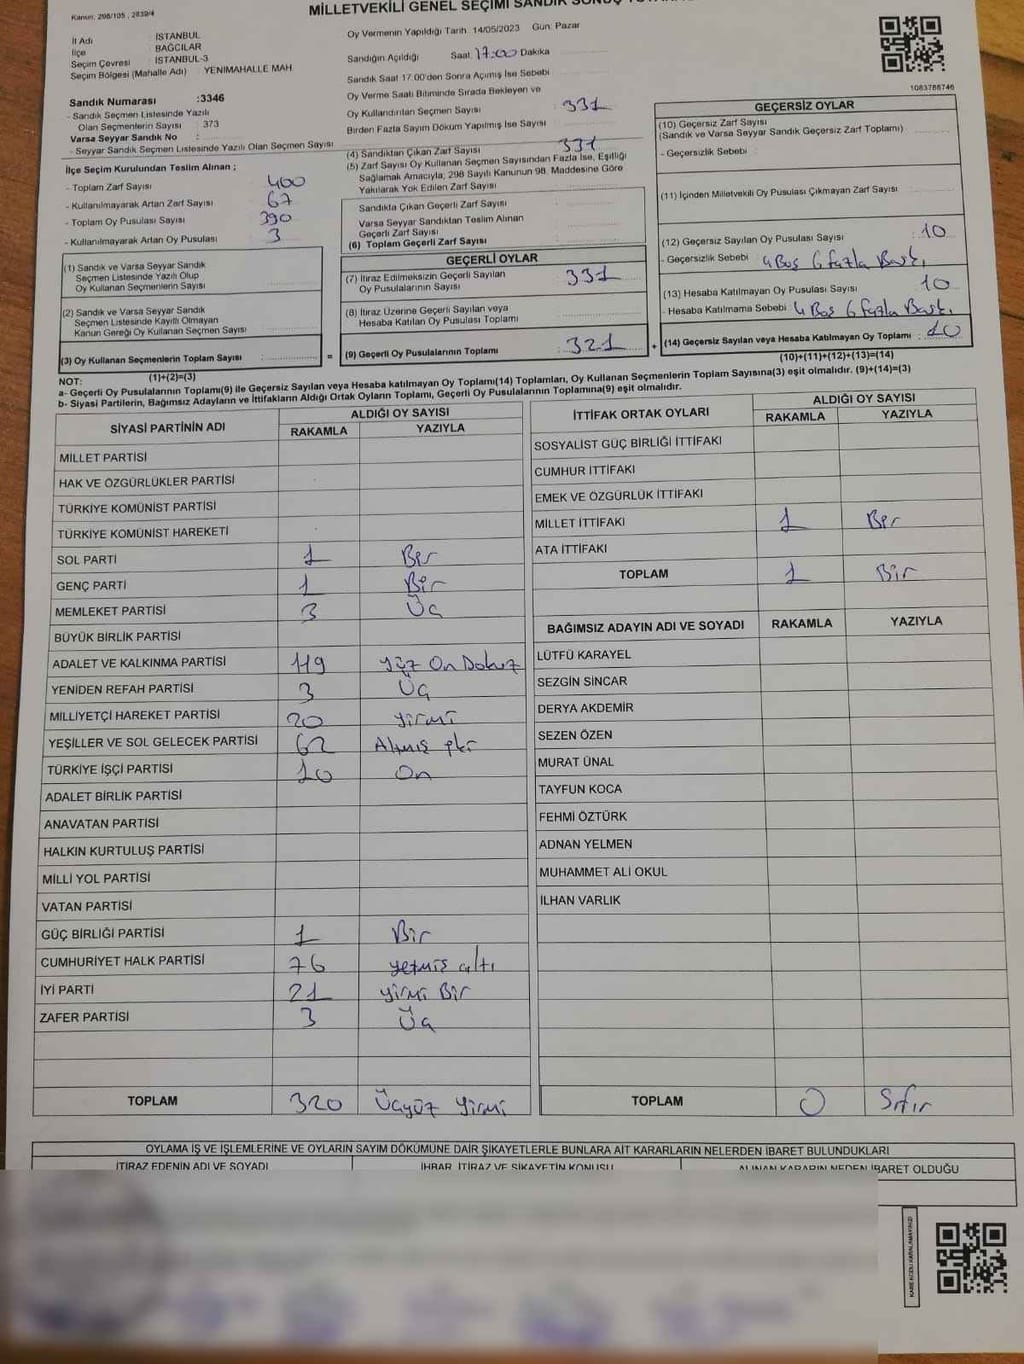 Kanun, 298/105 , 2839/4
MİLLETVEKİLİ GENEL SEÇİMİ SANDIK SONUÇ
İl Adı : İSTANBUL
İlçe : BAĞCILAR
Seçim Çevresi : İSTANBUL-3
Seçim Bölgesi (Mahalle Adı) YENİMAHALLE MAH
Oy Vermenin Yapıldığı Tarih 14/05/2023 Gün: Pazar
Sandığın Açıldığı Saat 17:00 Dakika
Sandık Saat 17.00'den Sonra Açımış İse Sebebi
Oy Verme Saati Bitiminde Sırada Bekleyen ve
Oy Kullandırılan Seçmen Sayısı : 331
Birden Fazla Sayım Döküm Yapılmış İse Sayısı
1083786746
Sandık Numarası :3346
- Sandık Seçmen Listesinde Yazılı
Olan Seçmenlerin Sayısı : 373
Varsa Seyyar Sandık No :
- Seyyar Sandık Seçmen Listesinde Yazılı Olan Seçmen Sayısı
İlçe Seçim Kurulundan Teslim Alınan ;
- Toplam Zarf Sayısı : 400
- Kullanılmayarak Artan Zarf Sayısı : 67
- Toplam Oy Pusulası Sayısı : 390
- Kullanılmayarak Artan Oy Pusulası : 3
(1) Sandık ve Varsa Seyyar Sandık
Seçmen Listesinde Yazılı Olup
Oy Kullanan Seçmenlerin Sayısı :
(2) Sandık ve Varsa Seyyar Sandık
Seçmen Listesinde Kayıtlı Olmayan
Kanun Gereği Oy Kullanan Seçmen Sayısı :
(3) Oy Kullanan Seçmenlerin Toplam Sayısı :
(1)+(2)=(3)
(4) Sandıktan Çıkan Zarf Sayısı : 331
(5) Zarf Sayısı Oy Kullanan Seçmen Sayısından Fazla İse, Eşitliği
Sağlamak Amacıyla, 298 Sayılı Kanunun 98. Maddesine Göre
Yakılarak Yok Edilen Zarf Sayısı :
Sandıkta Çıkan Geçerli Zarf Sayısı :
Varsa Seyyar Sandıktan Teslim Alınan
Geçerli Zarf Sayısı :
(6) Toplam Geçerli Zarf Sayısı :
GEÇERLİ OYLAR
(7) İtiraz Edilmeksizin Geçerli Sayılan
Oy Pusulalarının Sayısı : 331
(8) İtiraz Üzerine Geçerli Sayılan veya
Hesaba Katılan Oy Pusulası Toplamı :
= (9) Geçerli Oy Pusulalarının Toplamı : 321 +
GEÇERSİZ OYLAR
(10) Geçersiz Zarf Sayısı
(Sandık ve Varsa Seyyar Sandık Geçersiz Zarf Toplamı) :
- Geçersizlik Sebebi :
(11) İçinden Milletvekili Oy Pusulası Çıkmayan Zarf Sayısı :
(12) Geçersiz Sayılan Oy Pusulası Sayısı : 10
- Geçersizlik Sebebi : 4 Boş 6 fazla Bask.
(13) Hesaba Katılmayan Oy Pusulası Sayısı : 10
- Hesaba Katılmama Sebebi : 4 Boş 6 fazla Bask.
(14) Geçersiz Sayılan veya Hesaba Katılmayan Oy Toplamı : 10
(10)+(11)+(12)+(13)=(14)
NOT:
a- Geçerli Oy Pusulalarının Toplamı(9) ile Geçersiz Sayılan veya Hesaba katılmayan Oy Toplamı(14) Toplamları, Oy Kullanan Seçmenlerin Toplam Sayısına(3) eşit olmalıdır. (9)+(14)=(3)
b- Siyasi Partilerin, Bağımsız Adayların ve İttifakların Aldığı Ortak Oyların Toplamı, Geçerli Oy Pusulalarının Toplamına(9) eşit olmalıdır.
SİYASİ PARTİNİN ADI ALDIĞI OY SAYISI
RAKAMLA YAZIYLA
MİLLET PARTİSİ
HAK VE ÖZGÜRLÜKLER PARTİSİ
TÜRKİYE KOMÜNİST PARTİSİ
TÜRKİYE KOMÜNİST HAREKETİ
SOL PARTİ 1 Bir
GENÇ PARTİ 1 Bir
MEMLEKET PARTİSİ 3 Üç
BÜYÜK BİRLİK PARTİSİ
ADALET VE KALKINMA PARTİSİ 119 Yüz On Dokuz
YENİDEN REFAH PARTİSİ 3 Üç
MİLLİYETÇİ HAREKET PARTİSİ 20 Yirmi
YEŞİLLER VE SOL GELECEK PARTİSİ 62 Altmış
TÜRKİYE İŞÇİ PARTİSİ 10 On
ADALET BİRLİK PARTİSİ
ANAVATAN PARTİSİ
HALKIN KURTULUŞ PARTİSİ
MİLLİ YOL PARTİSİ
VATAN PARTİSİ
GÜÇ BİRLİĞİ PARTİSİ 1 Bir
CUMHURİYET HALK PARTİSİ 76 yetmiş altı
İYİ PARTİ 21 yirmi Bir
ZAFER PARTİSİ 3 Üç
TOPLAM 320 Üçyüz Yirmi
İTTİFAK ORTAK OYLARI ALDIĞI OY SAYISI
RAKAMLA YAZIYLA
SOSYALİST GÜÇ BİRLİĞİ İTTİFAKI
CUMHUR İTTİFAKI
EMEK VE ÖZGÜRLÜK İTTİFAKI
MİLLET İTTİFAKI 1 Bir
ATA İTTİFAKI
TOPLAM 1 Bir
BAĞIMSIZ ADAYIN ADI VE SOYADI RAKAMLA YAZIYLA
LÜTFÜ KARAYEL
SEZGİN SİNCAR
DERYA AKDEMİR
SEZEN ÖZEN
MURAT ÜNAL
TAYFUN KOCA
FEHMİ ÖZTÜRK
ADNAN YELMEN
MUHAMMET ALİ OKUL
İLHAN VARLIK
TOPLAM 0 Sıfır
OYLAMA İŞ VE İŞLEMLERİNE VE OYLARIN SAYIM DÖKÜMÜNE DAİR ŞİKAYETLERLE BUNLARA AİT KARARLARIN NELERDEN İBARET BULUNDUKLARI
İTİRAZ EDENİN ADI VE SOYADI İHBAR, İTİRAZ VE ŞİKAYETİN KONUSU ALINAN KARARIN NEDEN İBARET OLDUĞU